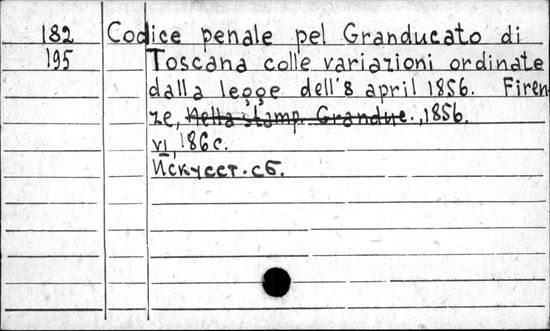 182 Codice penale pel Granducato di
195 Toscana colle variazioni ordinate
dalla legge dell'8 april 1856. Firen-
ze, Nella stamp. Grandue., 1856.
VI, 186 c.
Искусст. сб.